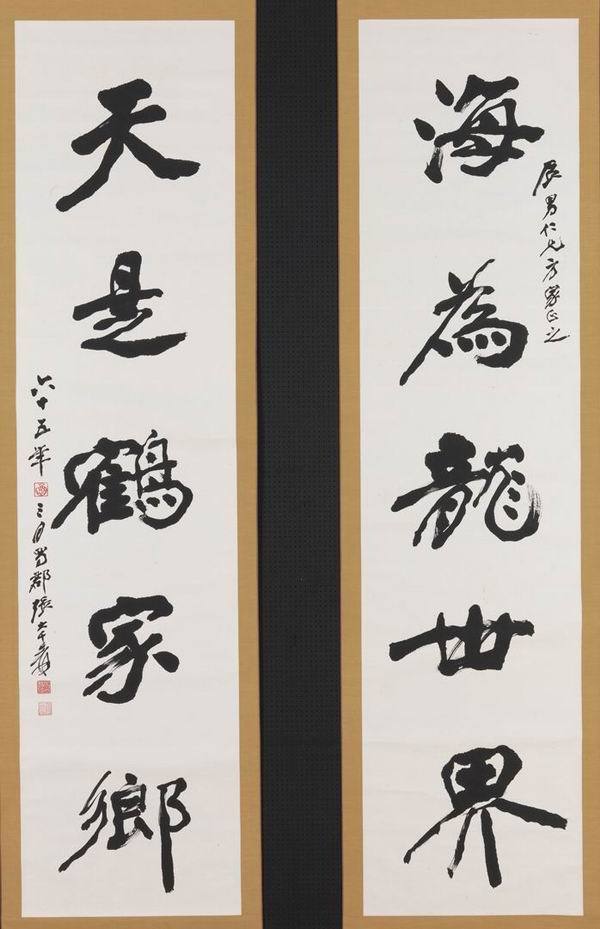 海為龍世界
仁兄方家正之
天是鶴家鄉
六十五年三月蜀郡張大千爰